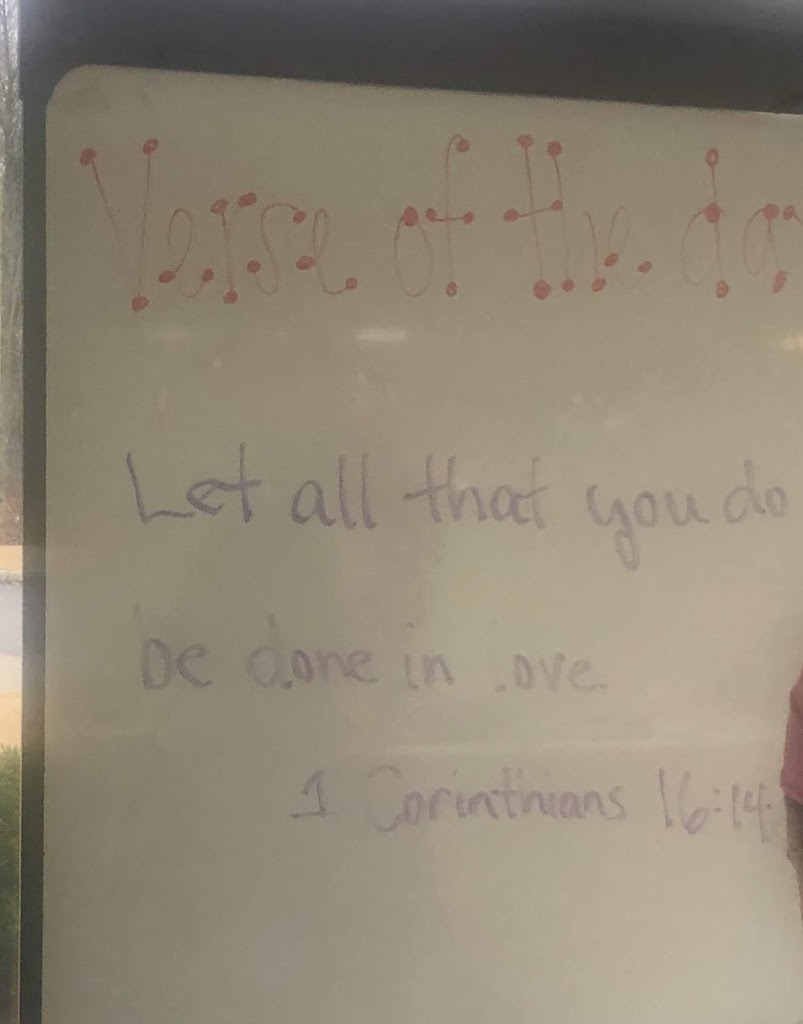 Verse of the day
Let all that you do
be done in love.
1 Corinthians 16:14